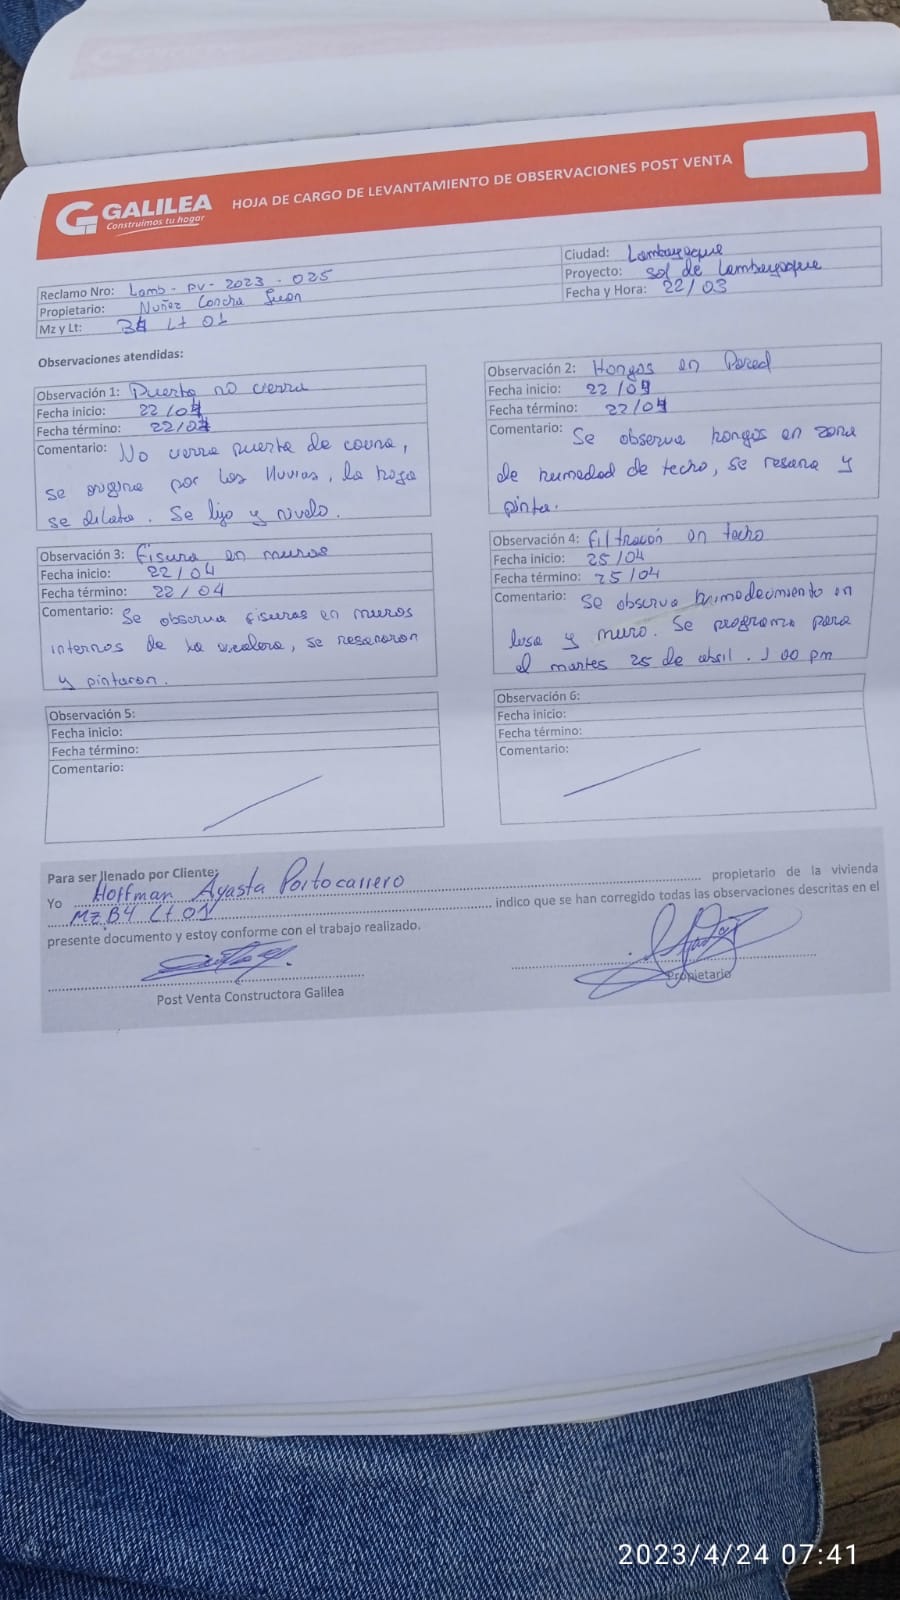 GALILEA
Construimos tu hogar
HOJA DE CARGO DE LEVANTAMIENTO DE OBSERVACIONES POST VENTA
Reclamo Nro: Lamb - PV - 2023 - 025
Propietario: Nuñez Concha
Mz y Lt: Lt 01
Ciudad: Lambayeque
Proyecto: Sol de Lambayeque
Fecha y Hora: 22/03
Observaciones atendidas:
Observación 1: Puerta no cierra
Fecha inicio: 22/04
Fecha término: 22/04
Comentario: No cierra puerta de cocina,
se origina por las lluvias, la hoja
se dilata. Se lijo y nivelo.
Observación 2: Hongos en Pared
Fecha inicio: 22/04
Fecha término: 22/04
Comentario: Se observa hongos en zona
de humedad de techo, se resana y
pinta.
Observación 3: Fisura en muros
Fecha inicio: 22/04
Fecha término: 22/04
Comentario: Se observa fisuras en muros
internos de la , se resanaron
y pintaron.
Observación 4: Filtración en techo
Fecha inicio: 25/04
Fecha término: 25/04
Comentario: Se observa humedecimiento en
losa y muro. Se programa para
el martes 25 de abril. 1 00 pm
Observación 5:
Fecha inicio:
Fecha término:
Comentario:
Observación 6:
Fecha inicio:
Fecha término:
Comentario:
Para ser llenado por Cliente:
Yo Hoffman Ayasta Portocarrero propietario de la vivienda
Mz B4 Lt 01 indico que se han corregido todas las observaciones descritas en el
presente documento y estoy conforme con el trabajo realizado.
Post Venta Constructora Galilea
Propietario
2023/4/24 07:41